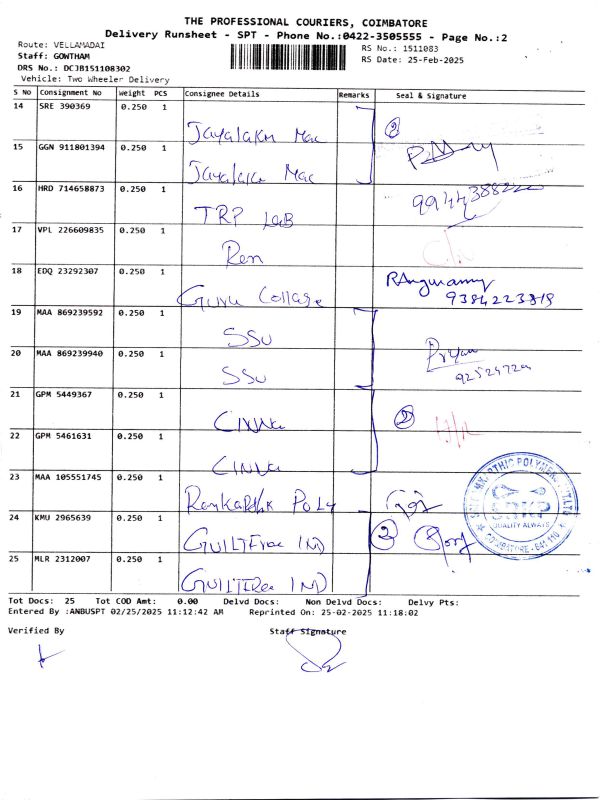 THE PROFESSIONAL COURIERS, COIMBATORE
Delivery Runsheet - SPT - Phone No.:0422-3505555 - Page No.:2
Route: VELLAMADAI
RS No.: 1511083
Staff: GOWTHAM
RS Date: 25-Feb-2025
DRS No.: DCJB151108302
Vehicle: Two Wheeler Delivery
S No Consignment No Weight PCS Consignee Details Remarks Seal & Signature
14 SRE 390369 0.250 1 Mac
2
15 GGN 911801394 0.250 1 Mac
16 HRD 714658873 0.250 1 TRP LAB
17 VPL 226609835 0.250 1 Ren
18 EDQ 23292307 0.250 1 Guru Collage
9384223819
19 MAA 869239592 0.250 1 SSU
20 MAA 869239940 0.250 1 SSU
Priyan
21 GPM 5449367 0.250 1
2
22 GPM 5461631 0.250 1
23 MAA 105551745 0.250 1 POLY
24 KMU 2965639 0.250 1 IND
2
25 MLR 2312007 0.250 1 IND
SRKP
QUALITY ALWAYS
COIMBATORE - 641 110
Tot Docs: 25 Tot COD Amt: 0.00 Delvd Docs: Non Delvd Docs: Delvy Pts:
Entered By :ANBUSPT 02/25/2025 11:12:42 AM Reprinted On: 25-02-2025 11:18:02
Verified By Staff Signature